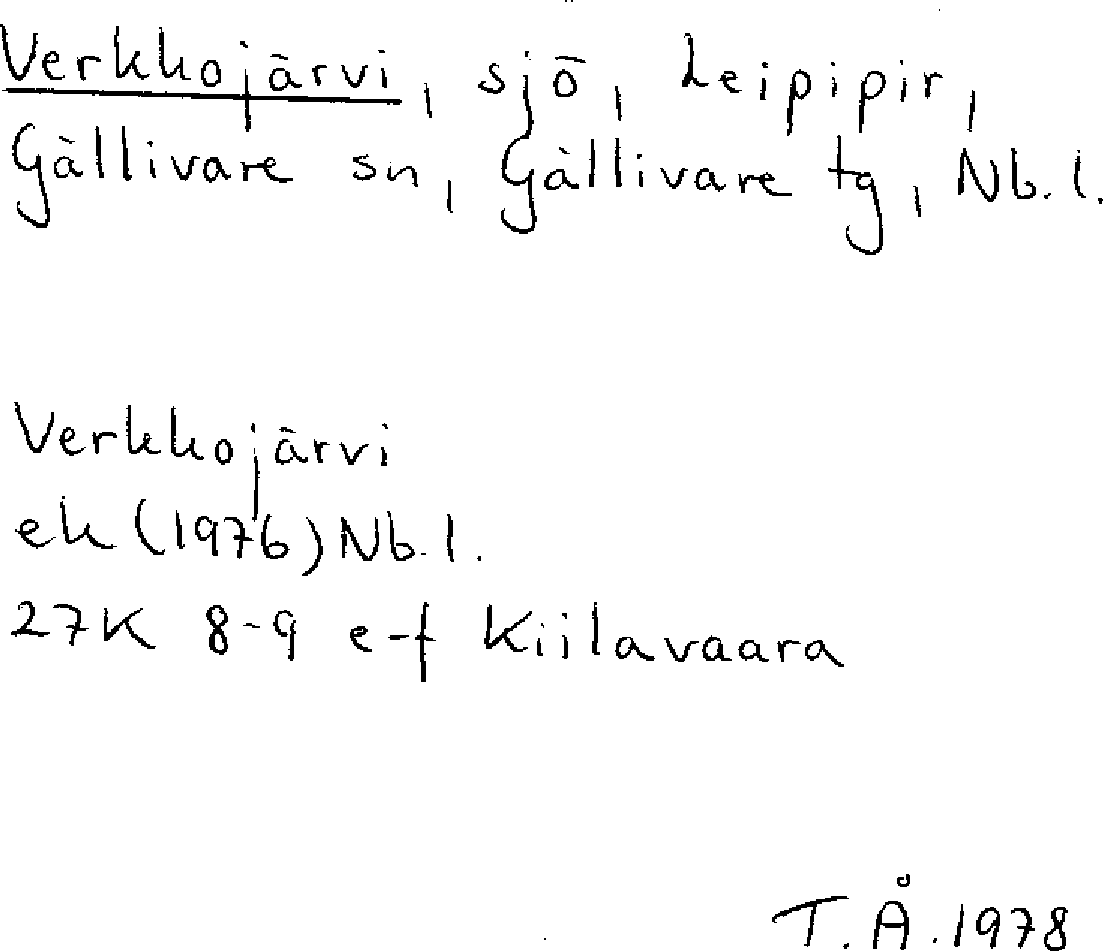 Verkkojärvi, sjö, Leipipir,
Gällivare sn, Gällivare tg, Nb.l.
Verkkojärvi
ek (1976) Nb.l.
27K 8-9 e-f Kiilavaara
T.Å. 1978